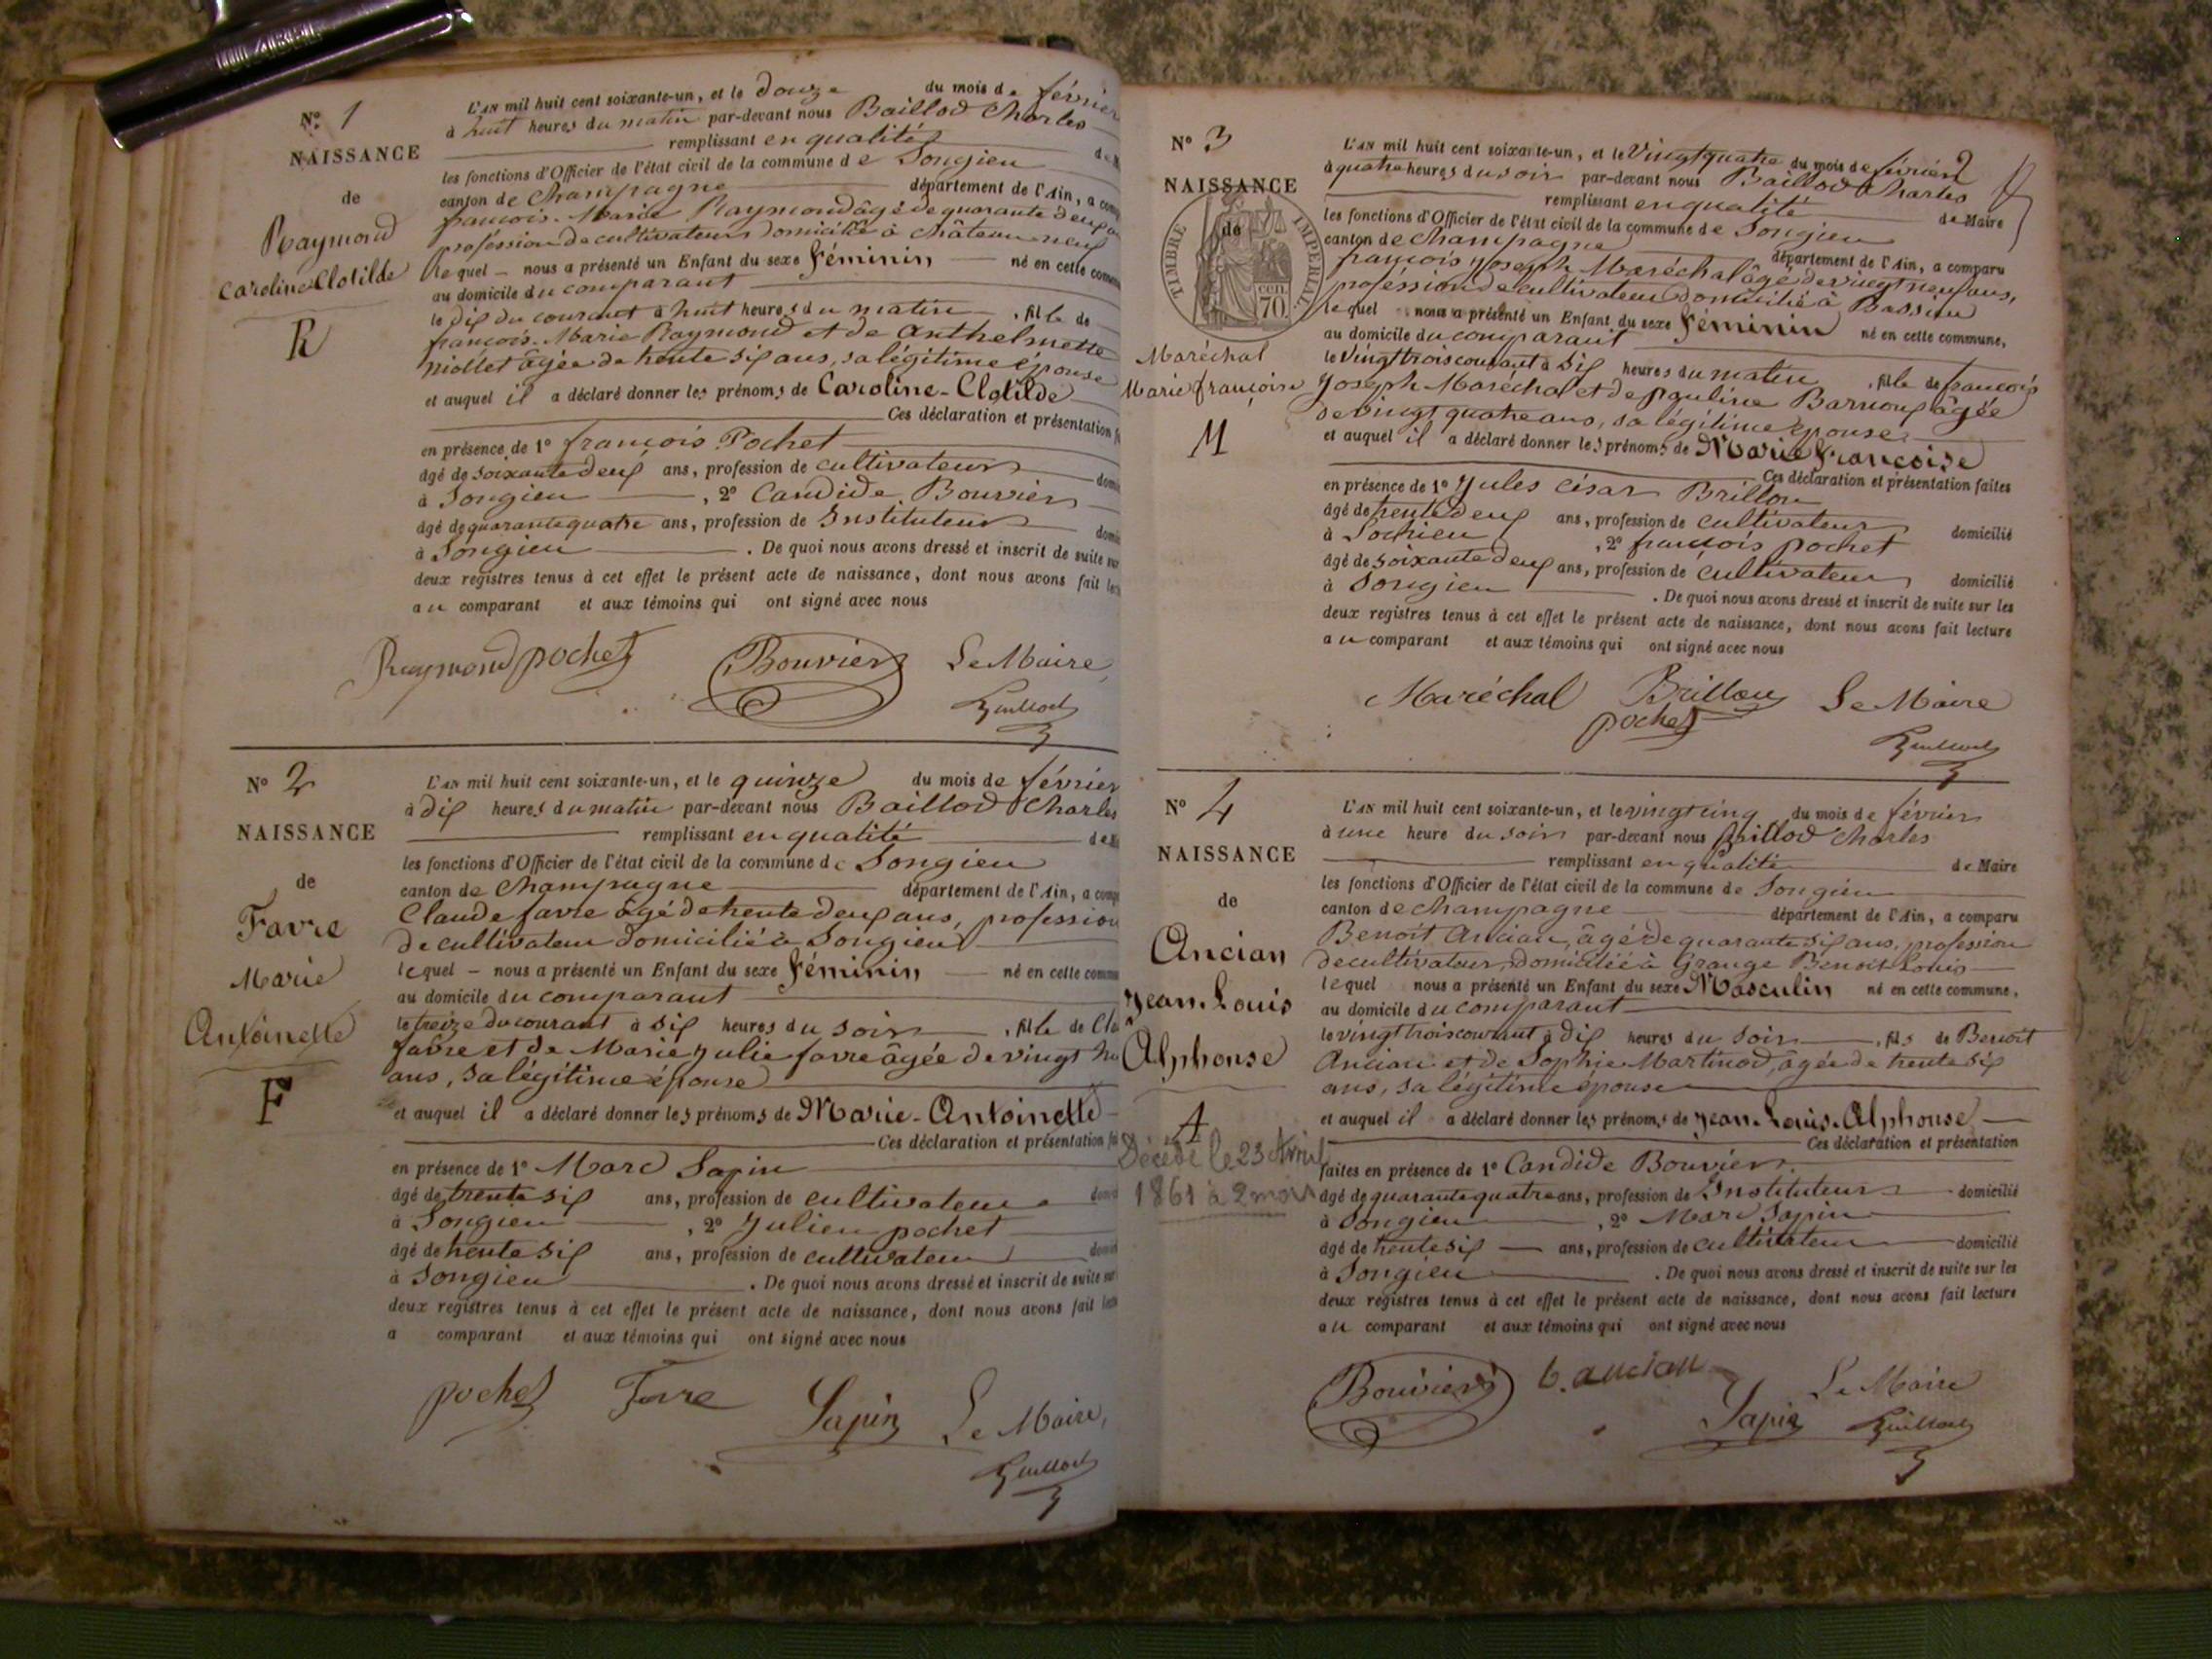 N° 1
NAISSANCE
de
Raymond
Caroline Clotilde
R
L'AN mil huit cent soixante-un, et le douze du mois de février
à huit heures du matin par-devant nous Baillod Charles
remplissant en qualité de M
les fonctions d'Officier de l'état civil de la commune de Songieu
canton de Champagne département de l'Ain, a comp
françois-Marie Raymond âgé de quarante deux
profession de cultivateur domicilié à châteauneuf
lequel nous a présenté un Enfant du sexe féminin né en cette commune
au domicile du comparant
le dix du courant à huit heures du matin, fille de
françois-Marie Raymond et de Anthelmette
niollet âgée de trente six ans, sa légitime épouse
et auquel il a déclaré donner les prénoms de Caroline-Clotilde
Ces déclaration et présentation
en présence de 1° françois Pochet
âgé de soixante deux ans, profession de cultivateur domi
à Songieu, 2° Candide Bouvier
âgé de quarante quatre ans, profession de Instituteur domi
à Songieu. De quoi nous avons dressé et inscrit de suite sur
deux registres tenus à cet effet le présent acte de naissance, dont nous avons fait lec
au comparant et aux témoins qui ont signé avec nous
Raymond pochet Bouvier Le Maire,
Baillod
N° 2
NAISSANCE
de
Favre
Marie
Antoinette
F
L'AN mil huit cent soixante-un, et le quinze du mois de février
à dix heures du matin par-devant nous Baillod Charles
remplissant en qualité de M
les fonctions d'Officier de l'état civil de la commune de Songieu
canton de Champagne département de l'Ain, a comp
Claude favre âgé de trente deux ans, profession
de cultivateur domicilié à Songieu
lequel – nous a présenté un Enfant du sexe féminin né en cette commu
au domicile du comparant
le treize du courant à six heures du soir, fille de Cla
favre et de Marie Julie favre âgée de vingt hu
ans, sa légitime épouse
et auquel il a déclaré donner les prénoms de Marie-Antoinette
Ces déclaration et présentation fai
en présence de 1° Marc Sapin
âgé de trente six ans, profession de cultivateur domi
à Songieu, 2° Julien pochet
âgé de trente six ans, profession de cultivateur domi
à Songieu. De quoi nous avons dressé et inscrit de suite sur
deux registres tenus à cet effet le présent acte de naissance, dont nous avons fait lect
a comparant et aux témoins qui ont signé avec nous
pochet Favre Sapin Le Maire,
Baillod
N° 3
NAISSANCE
de
TIMBRE IMPÉRIAL
70 cen.
Maréchal
Marie françoise
M
L'AN mil huit cent soixante-un, et le Vingt quatre du mois de février
à quatre heures du soir par-devant nous Baillod Charles
remplissant en qualité de Maire
les fonctions d'Officier de l'état civil de la commune de Songieu
canton de Champagne département de l'Ain, a comparu
françois Joseph Maréchal âgé de vingt neuf ans,
profession de cultivateur domicilié à Bassieu
lequel nous a présenté un Enfant du sexe féminin né en cette commune,
au domicile du comparant
le Vingt trois courant à six heures du matin, fille de françois
Joseph Maréchal et de pauline Barrioux âgée
de vingt quatre ans, sa légitime épouse
et auquel il a déclaré donner les prénoms de Marie françoise
Ces déclaration et présentation faites
en présence de 1° Jules césar Brillon
âgé de trente deux ans, profession de cultivateur domicilié
à Lochieu, 2° françois pochet
âgé de soixante deux ans, profession de cultivateur domicilié
à Songieu. De quoi nous avons dressé et inscrit de suite sur les
deux registres tenus à cet effet le présent acte de naissance, dont nous avons fait lecture
au comparant et aux témoins qui ont signé avec nous
Maréchal Brillon Le Maire
pochet
Baillod
N° 4
NAISSANCE
de
Ancian
Jean-Louis
Alphonse
A
Décédé le 23 Avril
1861 à 2 mois
L'AN mil huit cent soixante-un, et le vingt cinq du mois de février
à une heure du soir par-devant nous Baillod Charles
remplissant en qualité de Maire
les fonctions d'Officier de l'état civil de la commune de Songieu
canton de Champagne département de l'Ain, a comparu
Benoit Ancian, âgé de quarante six ans, profession
de cultivateur, domicilié à Grange Benoit Louis
lequel nous a présenté un Enfant du sexe Masculin né en cette commune,
au domicile du comparant
le vingt trois courant à dix heures du soir, fils de Benoit
Ancian et de Sophie Martinod, âgée de trente six
ans, sa légitime épouse
et auquel il a déclaré donner les prénoms de Jean-Louis-Alphonse
Ces déclaration et présentation
faites en présence de 1° Candide Bouvier
âgé de quarante quatre ans, profession de Instituteur domicilié
à Songieu, 2° Marc Sapin
âgé de trente six ans, profession de cultivateur domicilié
à Songieu. De quoi nous avons dressé et inscrit de suite sur les
deux registres tenus à cet effet le présent acte de naissance, dont nous avons fait lecture
au comparant et aux témoins qui ont signé avec nous
Bouvier b. ancian Le Maire
Sapin Baillod